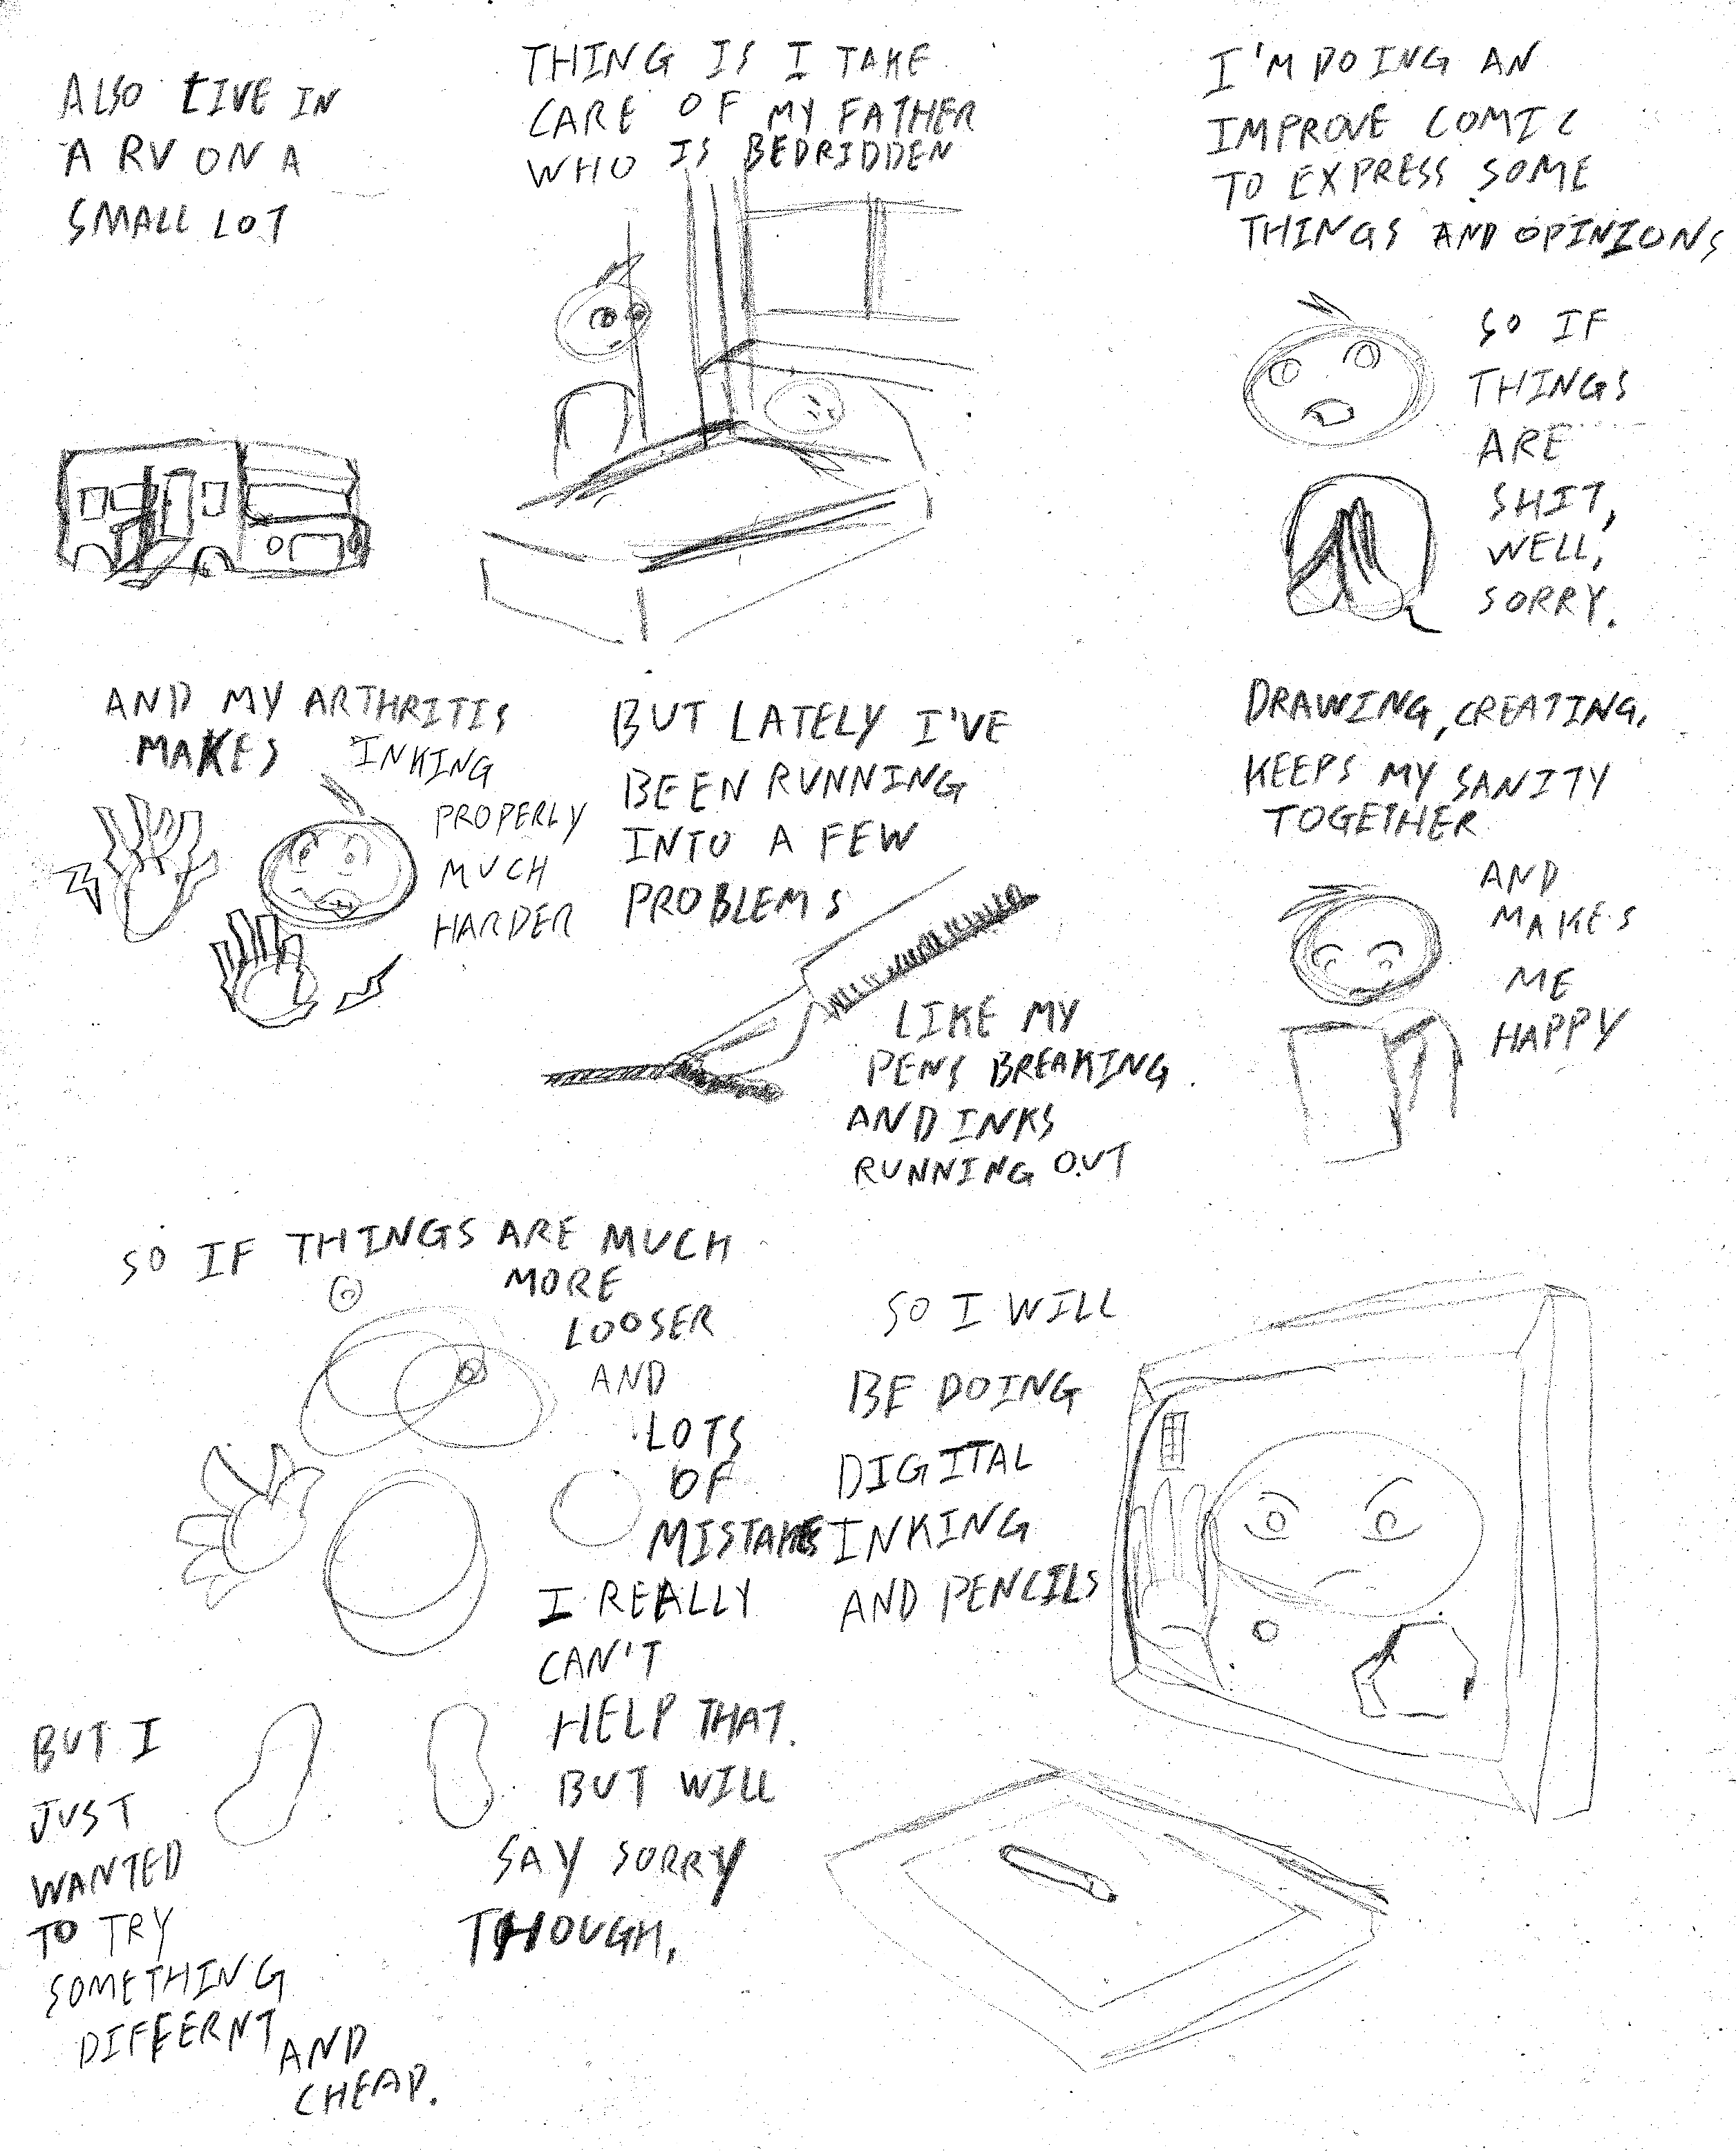 I'M DOING AN
IMPROVE COMIC
TO EXPRESS SOME
THINGS AND OPINIONS
SO IF
THINGS
ARE
SHIT,
WELL,
SORRY.
THING IS I TAKE
CARE OF MY FATHER
WHO IS BEDRIDDEN
ALSO LIVE IN
A RV ON A
SMALL LOT
DRAWING, CREATING,
KEEPS MY SANITY
TOGETHER
AND
MAKES
ME
HAPPY
BUT LATELY I'VE
BEEN RUNNING
INTO A FEW
PROBLEMS
LIKE MY
PENS BREAKING
AND INKS
RUNNING OUT
AND MY ARTHRITIS
MAKES INKING
PROPERLY
MUCH
HARDER
SO I WILL
BE DOING
DIGITAL
INKING
AND PENCILS
SO IF THINGS ARE MUCH
MORE
LOOSER
AND
LOTS
OF
MISTAKES
I REALLY
CAN'T
HELP THAT.
BUT WILL
SAY SORRY
THOUGH,
BUT I
JUST
WANTED
TO TRY
SOMETHING
DIFFERNT
AND
CHEAP.